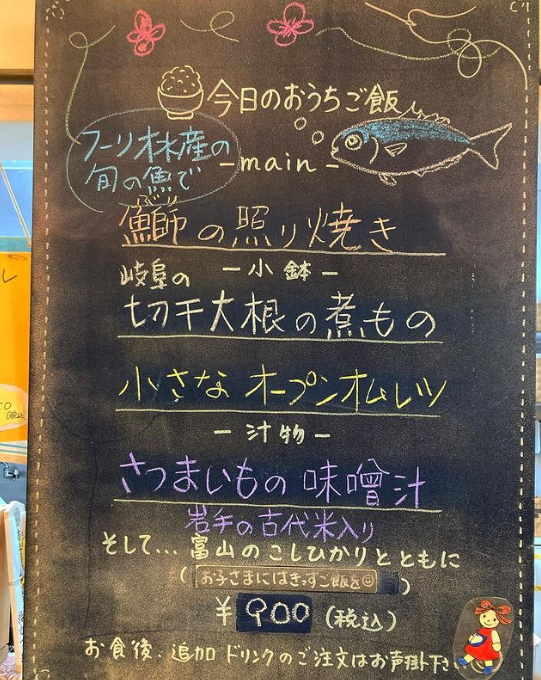 今日のおうちご飯
フーリ林産の
旬の魚で
-main-
鰤の照り焼き
-小鉢-
岐阜の
切干大根の煮もの
小さな オープンオムレツ
-汁物-
さつまいもの 味噌汁
岩手の古代米入り
そして… 富山のこしひかりとともに
(お子さまにはきっずご飯を☺)
¥900(税込)
お食後、追加ドリンクのご注文はお声掛下さい